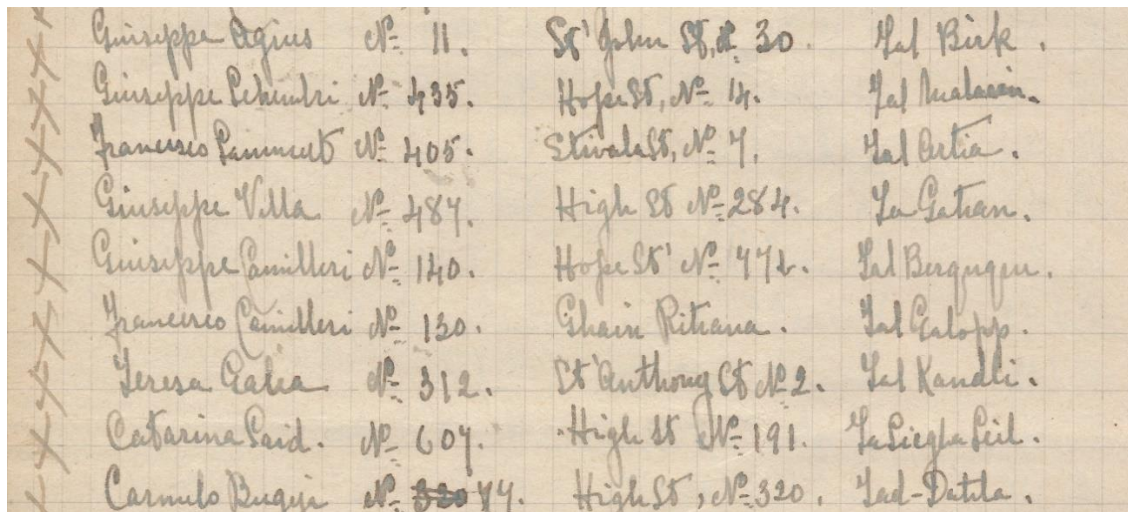 Giuseppe Agius No 11. St John St, No 30. Tal Birk.
Giuseppe Schembri No 435. Hope St, No 14. Tal
Francesco No 405. Stivala St, No 7. Tal Artia.
Giuseppe Villa No 487. High St No 284. Ta Gatian.
Giuseppe Camilleri No 140. Hope St No Tal
Francesco Camilleri No 130. Ghain Rihana. Tal Galopp.
Teresa Galea No 312. St Anthony St No 2. Tal Kandli.
Catarina Said. No 607. High St No 191. Ta
Carmelo Bugeja No 320 77. High St, No 320. Tad-Datila.